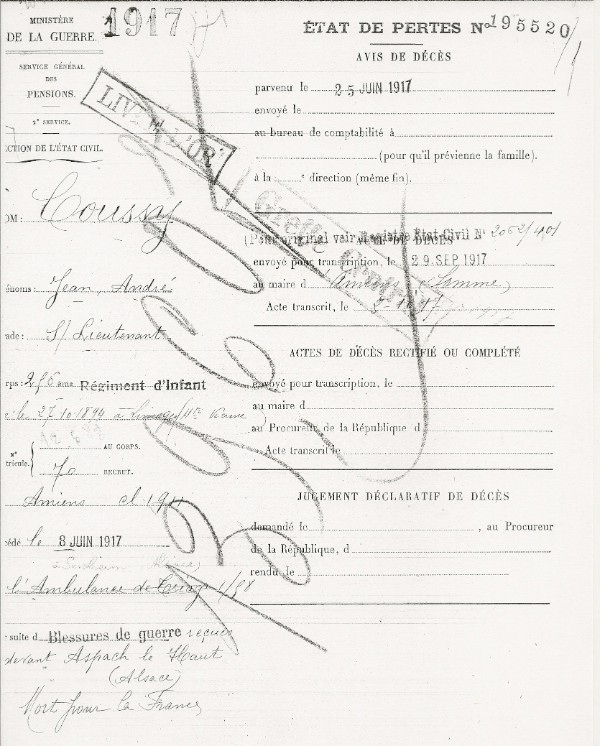 MINISTÈRE
DE LA GUERRE.
1917
SERVICE GÉNÉRAL
DES
PENSIONS.
2e SERVICE.
CTION DE L'ÉTAT CIVIL.
LIVRE D'OR
OM: Coussay
énoms: Jean, André
ade: S/ Lieutenant
rps: ème Régiment d'Infant
le 27-10-1894 à Limoges (Hte Vienne)
N°
tricule:
AU CORPS.
70 RECRUT.
Amiens cl
édé le 8 JUIN 1917
à
l'Ambulance de
suite d Blessures de guerre reçues
devant Aspach le Haut
(Alsace)
Mort pour la France
ÉTAT DE PERTES N° 195520
AVIS DE DÉCÈS
parvenu le 25 JUIN 1917
envoyé le
au bureau de comptabilité à
(pour qu'il prévienne la famille).
à la e direction (même fin).
Greffe
(Pour original voir Registre Etat-Civil N° 2062/401
ACTE DE DÉCÈS
envoyé pour transcription, le 29 SEP 1917
au maire d Amiens (Somme)
Acte transcrit, le
ACTES DE DÉCÈS RECTIFIÉ OU COMPLÉTÉ
envoyé pour transcription, le
au maire d
au Procureur de la République d
Acte transcrit le
JUGEMENT DÉCLARATIF DE DÉCÈS
demandé le , au Procureur
de la République, d
rendu le